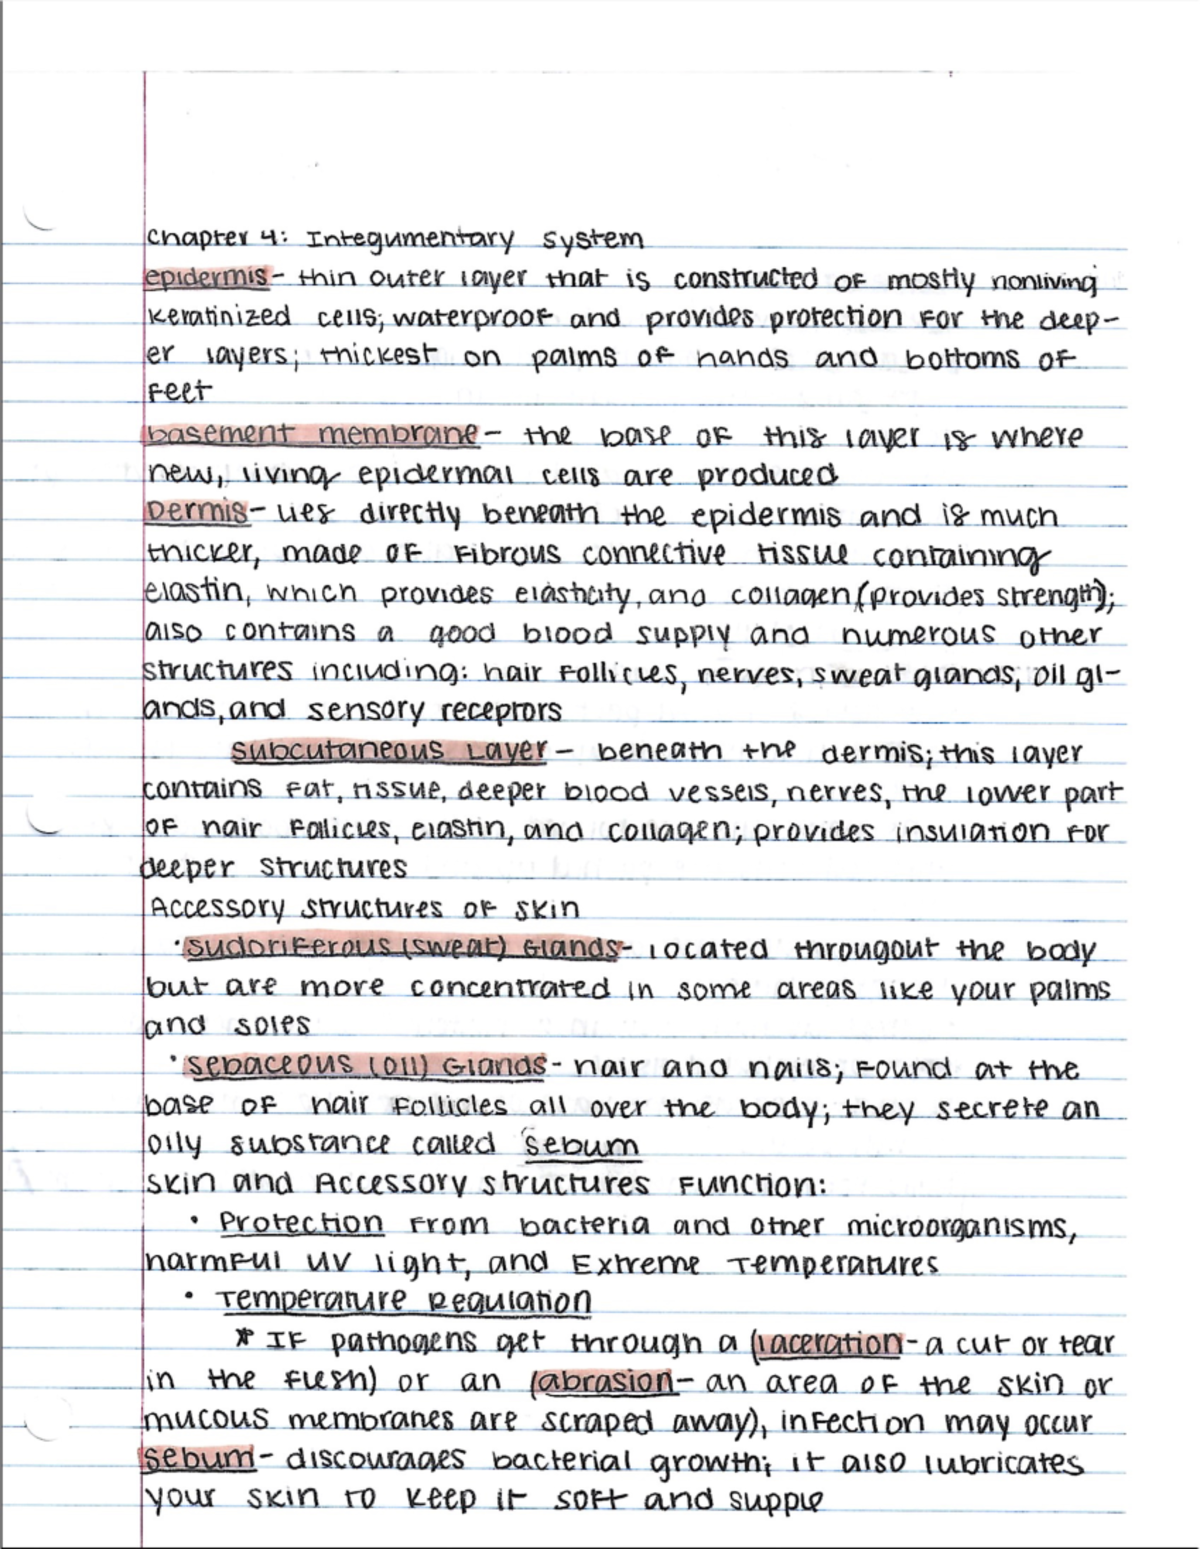 Chapter 4: Integumentary System
epidermis - thin outer layer that is constructed of mostly nonliving
keratinized cells; waterproof and provides protection for the deep-
er layers; thickest on palms of hands and bottoms of
feet
basement membrane - the base of this layer is where
new, living epidermal cells are produced
Dermis - lies directly beneath the epidermis and is much
thicker, made of fibrous connective tissue containing
elastin, which provides elasticity, and collagen (provides strength);
also contains a good blood supply and numerous other
structures including: hair follicles, nerves, sweat glands, oil gl-
ands, and sensory receptors
Subcutaneous Layer - beneath the dermis; this layer
contains fat, tissue, deeper blood vessels, nerves, the lower part
of hair follicles, elastin, and collagen; provides insulation for
deeper structures
Accessory structures of skin
• Sudoriferous (sweat) Glands - located througout the body
but are more concentrated in some areas like your palms
and soles
• Sebaceous (oil) Glands - hair and nails; found at the
base of hair follicles all over the body; they secrete an
oily substance called sebum
Skin and Accessory structures Function:
• Protection from bacteria and other microorganisms,
harmful UV light, and Extreme Temperatures
• Temperature Regulation
* If pathogens get through a (laceration - a cut or tear
in the flesh) or an (abrasion - an area of the skin or
mucous membranes are scraped away), infection may occur
sebum - discourages bacterial growth; it also lubricates
your skin to keep it soft and supple